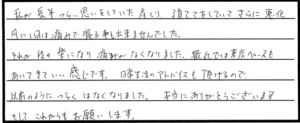 私が長年つらい思いをしていた肩こり 頭痛でをしていてさらに悪化
月に1回は痛みで腕も動も出来ませんでした。
それが段々楽になり痛みがなくなりました。最近では来店ペースも
あいてきていい感じです。日常生活のアドバイスも頂けるので
以前のようにつらくはなくなりました。本当にありがとうございます
そして、これからもお願いします。